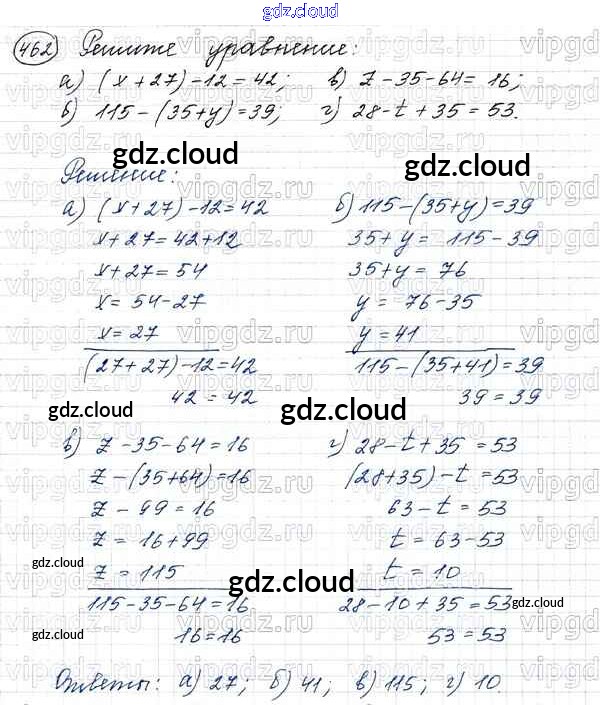 gdz.cloud
462 Решите уравнение:
а) (x+27)-12=42; в) z-35-64=16;
б) 115-(35+y)=39; г) 28-t+35=53.
gdz.cloud gdz.cloud
Решение:
а) (x+27)-12=42 б) 115-(35+y)=39
x+27=42+12 35+y= 115-39
x+27=54 35+y= 76
x= 54-27 y= 76-35
x=27 y=41
(27+27)-12=42 115-(35+41)=39
42=42 39=39
gdz.cloud gdz.cloud
в) z-35-64=16 г) 28-t+35=53
z-(35+64)=16 (28+35)-t=53
z-99=16 63-t=53
z=16+99 t=63-53
gdz.cloud gdz.cloud
z=115 t=10
gdz.cloud
115-35-64=16 28-10+35=53
gdz.cloud
16=16 53=53
gdz.cloud gdz.cloud
Ответы: а) 27; б) 41; в) 115; г) 10.
vipgdz.ru